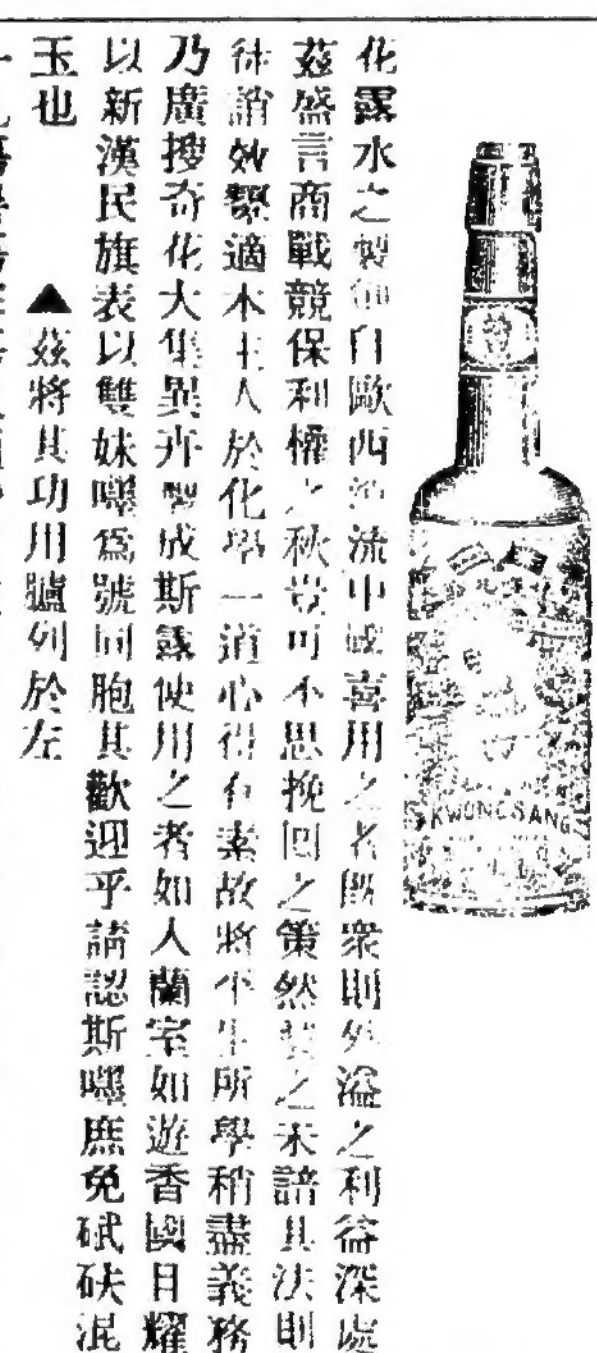 花露水之製創自歐西流中國喜用之者既衆則外溢之利益深處
茲盛言商戰競保利權之秋豈可不思挽回之策然製之未諳其法則
徒誚效顰適本主人於化學一道心得有素故將平生所學稍盡義務
乃廣搜奇花大集異卉製成斯露使用之者如人蘭室如遊香國目耀
以新漢民旗表以雙妹嘜爲號同胞其歡迎乎請認斯嘜庶免碔砆混
玉也 ▲茲將其功用臚列於左
KWONGSANG